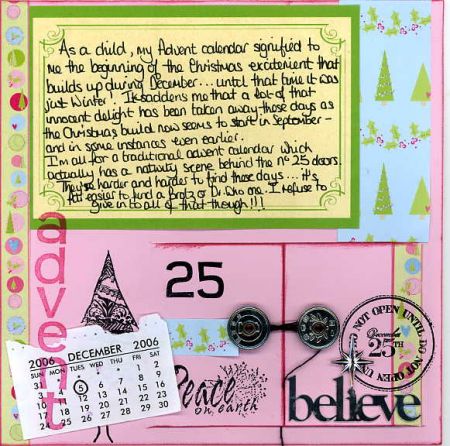 As a child, my Advent calendar signified to
me the beginning of the Christmas excitement that
builds up during December... until that time it was
just 'Winter'. It saddens me that a lot of that
innocent delight has been taken away these days as
the Christmas build now seems to start in September -
and in some instances even earlier.
I'm all for a traditional advent calendar which
actually has a nativity scene behind the nº 25 doors.
They're harder and harder to find these days... it's
far easier to find a Bratz or Dr. Who one. I refuse to
give in to all of that though!!!
advent
25
2006 DECEMBER 2006
SUN MON TUES WED THU FRI SAT
1 2
3 4 5 6 7 8 9
10 11 12 13 14 15 16
17 18 19 20 21 22 23
24 25 26 27 28 29 30
Peace
on earth
NOT OPEN UNTIL DO NOT OPEN UNTIL DO
December
25TH
believe